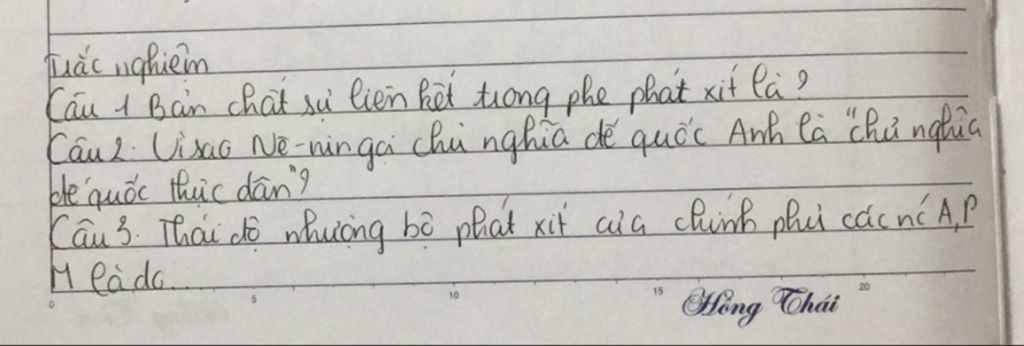 Trắc nghiệm
Câu 1 Bản chất sự liên kết trong phe phát xít là?
Câu 2. Vì sao Nê-nin gọi chủ nghĩa đế quốc Anh là "chủ nghĩa
đế quốc thực dân"?
Câu 3. Thái độ nhượng bộ phát xít của chính phủ các nc A, P
M là do...
0 5 10 15 20
Hồng Thái